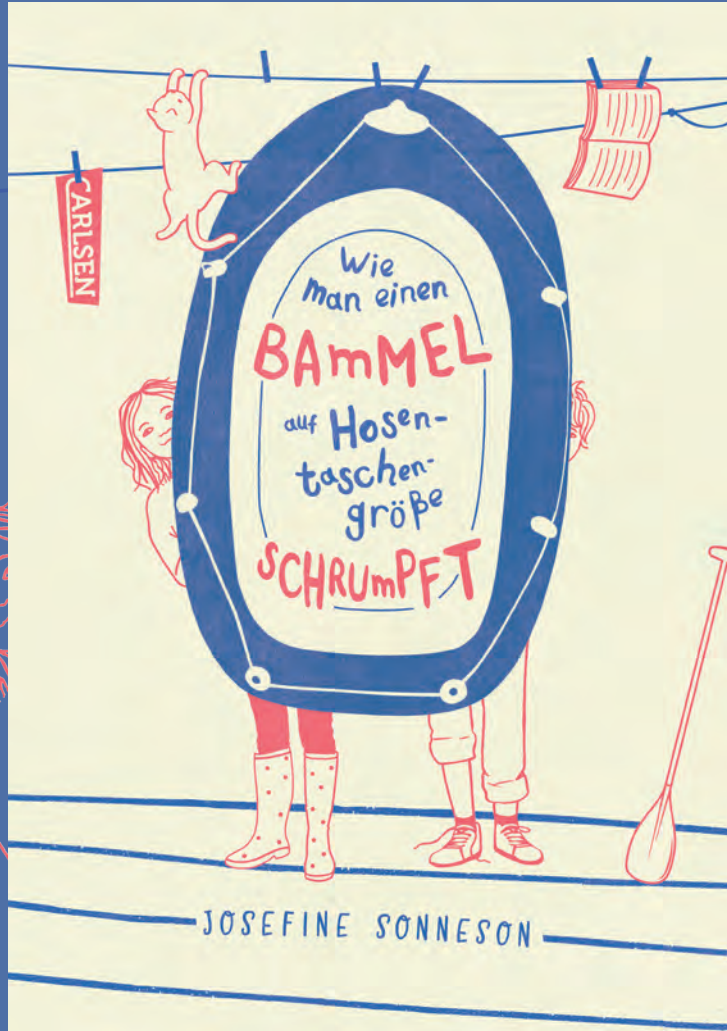 CARLSEN
Wie
man einen
BAmMEL
auf Hosen-
taschen-
größe
SCHRUmPFT
JOSEFINE SONNESON